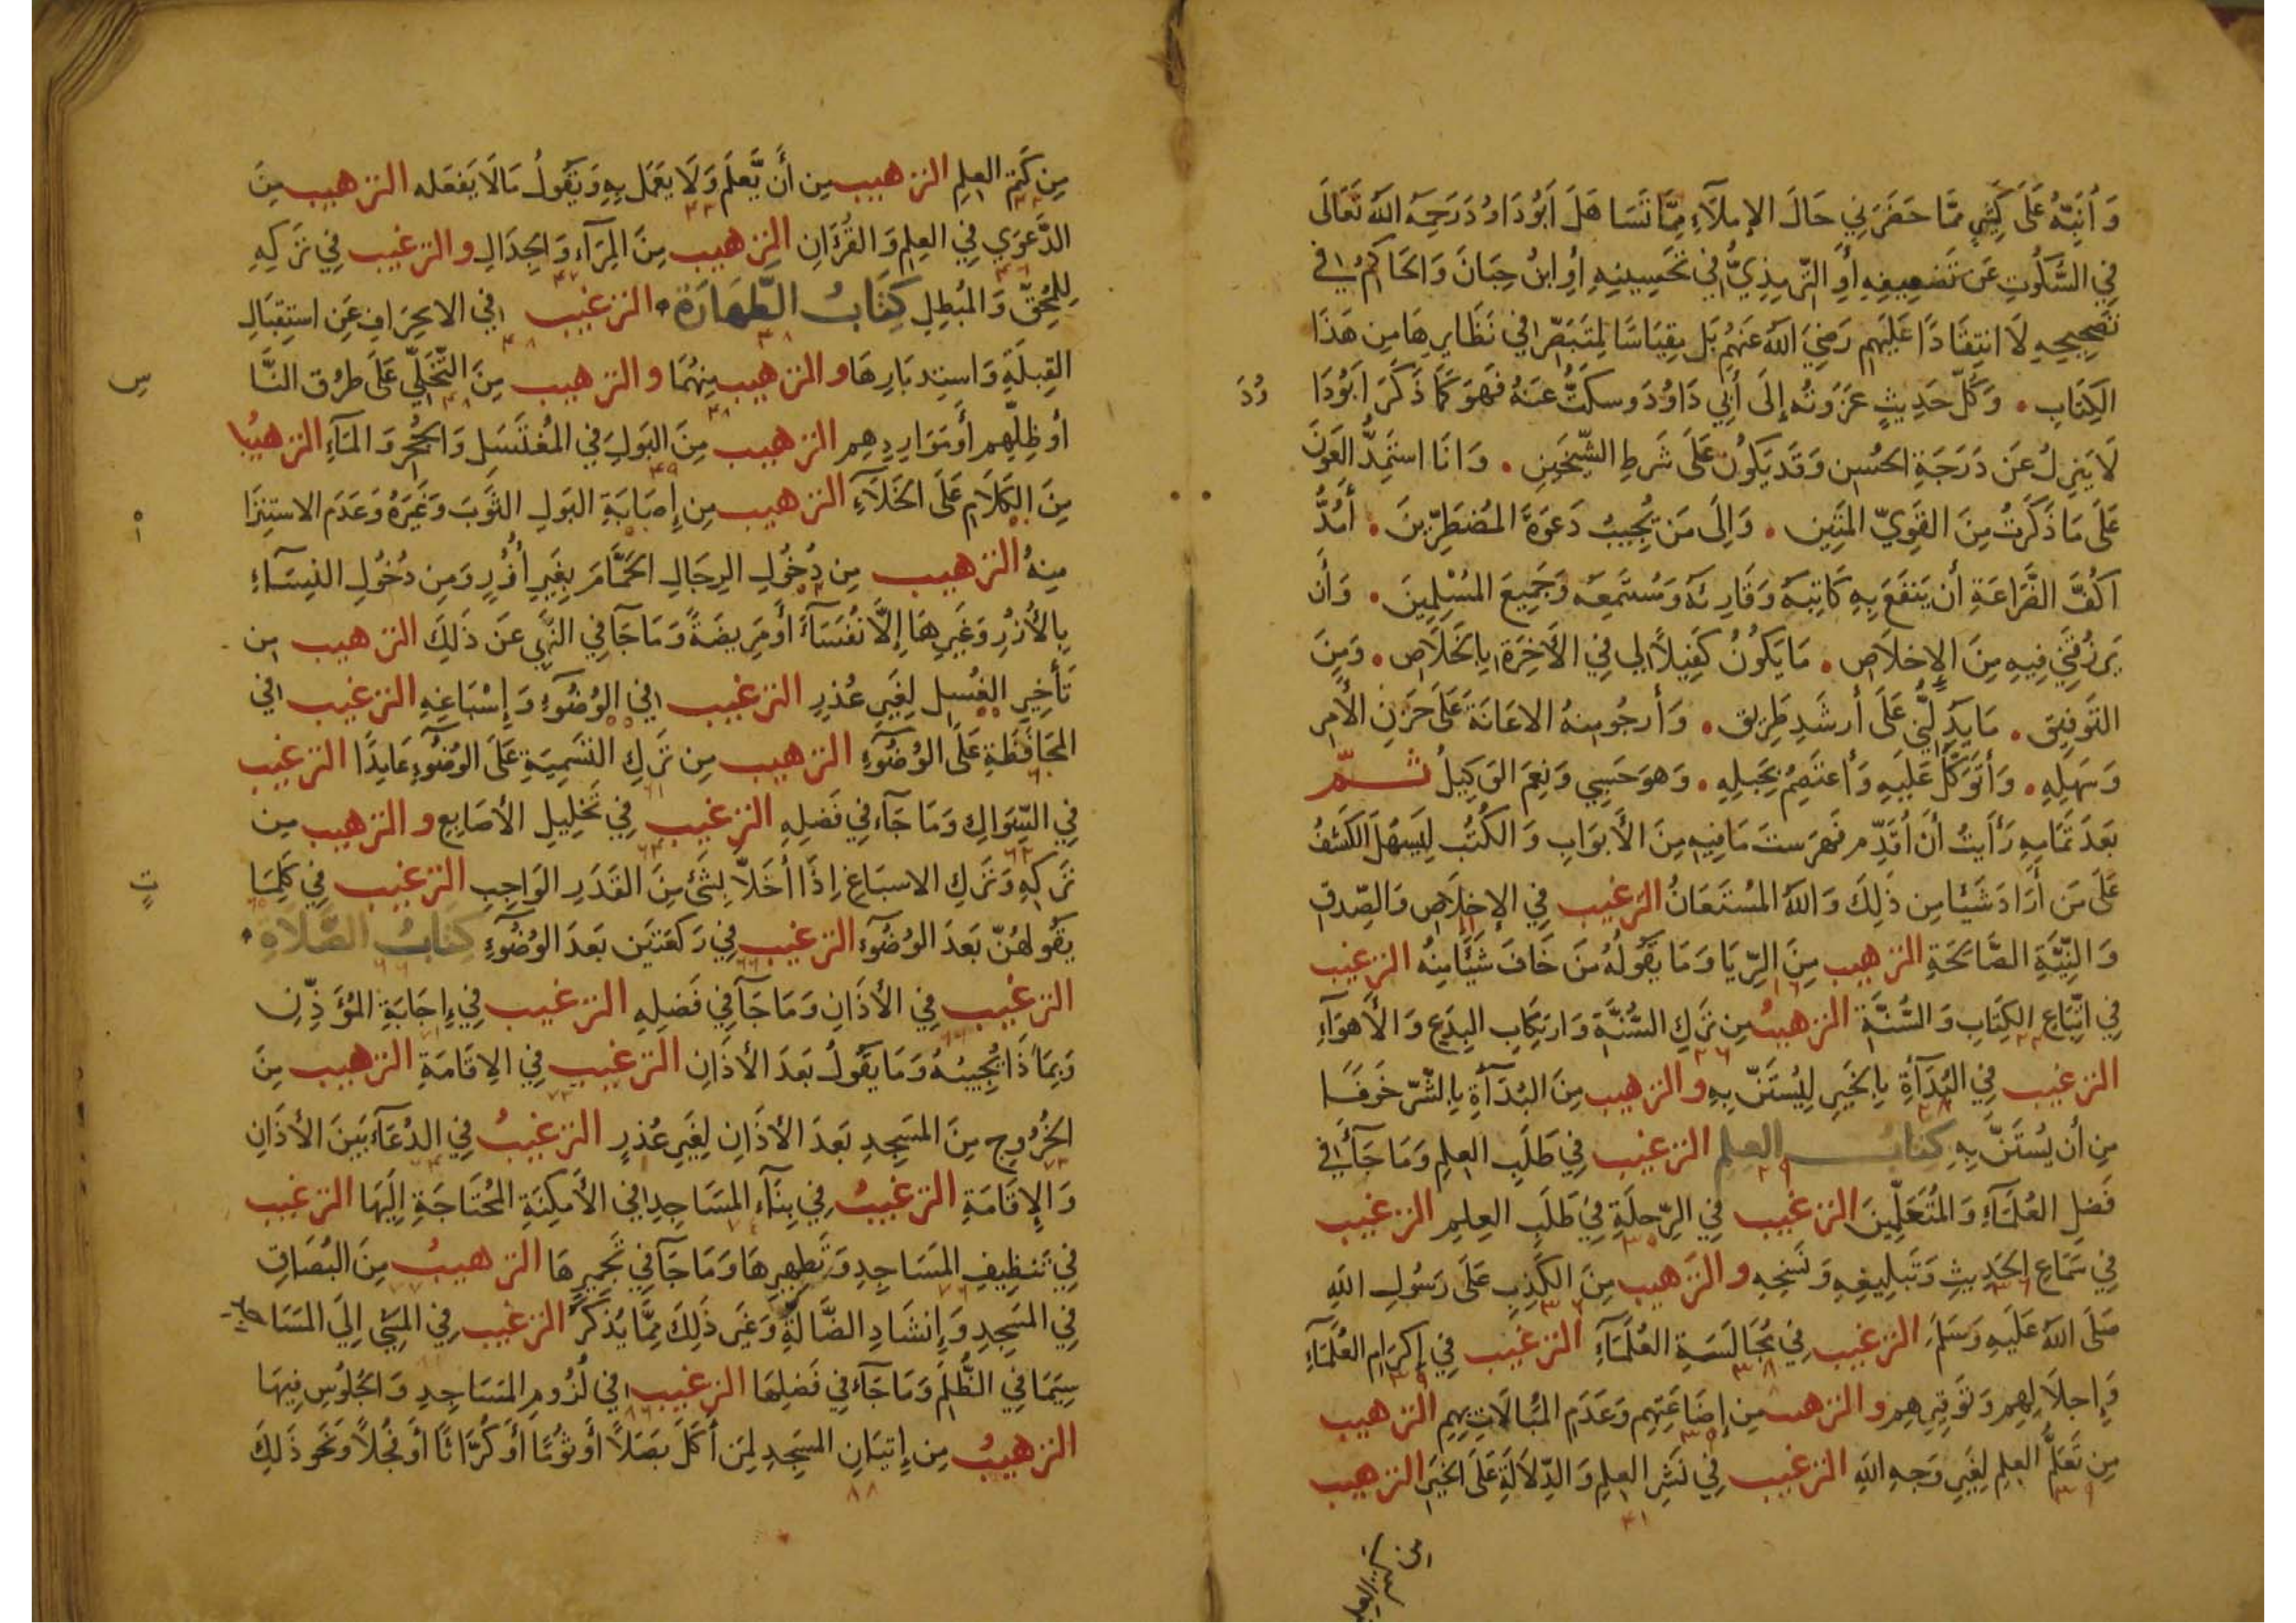 وَأُنَبِّهُ عَلَى كَثِيرٍ مِمَّا حَضَرَنِي حَالَ الإِملَآءِ مِمَّا تَسَاهَلَ أَبُودَاوُدَ رَحِمَهُ اللهُ تَعَالَى
فِي السُّكُوتِ عَن تَضعِيفِهِ أَوِ التِّرمِذِيُّ فِي تَحسِينِهِ أَوِ ابنُ حِبَّانَ وَالحَاكِمُ فِي
تَصحِيحِهِ لَا انتِقَادًا عَلَيهِم رَضِيَ اللهُ عَنهُم بَل مِقيَاسًا لِمُتَبَصِّرٍ فِي نَظَايِرِهَا مِن هَذَا
الكِتَابِ . وَكُلُّ حَدِيثٍ عَزَوتُه إِلَى أَبِي دَاوُدَ وسكَتُّ عَنهُ فَهوَ كَمَا ذَكَرَ أَبُودَا
وُدَ
لَا يَنزِلُ عَن دَرَجَةِ الحُسنِ وَقَد يَكُونُ عَلَى شَرطِ الشَّيخَينِ . وَانَا استَمِدُّ العَونَ
عَلَى مَا ذَكَرتُ مِنَ القَوِيِّ المَتِينِ . وَإِلَى مَن يُجِيبُ دَعوَةَ المُضطَرِّينَ . أَمُدُّ
اكُفَّ الضَّرَاعَةِ أَن يَنفَعَ بِهِ كَاتِبَه وَقَارِئَه وَمُستَمِعَه وَجَمِيعَ المُسْلِمِينَ . وَأَن
يَرزُقَنِي فِيهِ مِنَ الإِخلَاصِ . مَا يَكُونُ كَفِيلًا لِي فِي الأَخِرَةِ بِالخَلَاصِ . وَمِنَ
التَوفِيقِ . مَا يَدُلُّنِي عَلَى أَرشَدِ طَرِيق . وَأَرجُو مِنهُ الاعَانَةَ عَلَى حَزنِ الأَمرِ
وَسَهلِهِ . وَأَتَوَكَّلُ عَلَيهِ وَأَعتَصِمُ بِحَبلِهِ . وَهوَ حَسبِي وَنِعمَ الوَكِيلُ ثُمَّ
بَعدَ تَمَامِهِ رَأَيتُ أَن أُقَدِّمَ فهرَستَ مَا فِيهِ مِنَ الأَبوَابِ وَالكُتُبِ لِيَسهُلَ الكَشفُ
عَلَى مَن أَرَادَ شَيئًا مِن ذَلِكَ وَاللهُ المُستَعَانُ الترغيب فِي الإِخلَاصِ وَالصِّدقِ
وَالنِّيَّةِ الصَّالِحَةِ الترهيب مِنَ الرِّيَا وَمَا يَقُولُهُ مَن خَافَ شَيئًا مِنهُ الترغيب
فِي اتِّبَاعِ الكِتَابِ وَالسُّنَّةِ الترهيبُ مِن تَركِ السُّنَّةِ وَارتِكَابِ البِدَعِ وَالأَهوَآءِ
الترغيب فِي البُدَآأَةِ بِالخَيرِ لِيُستَنَّ بِهِ والترهيب مِنَ البُدَآأَةِ بِالشَّرِّ خَوفًا
مِن أَن يُستَنَّ بِهِ كتابُ العِلمِ الترغيب فِي طَلَبِ العِلمِ وَمَا جَآءَ فِي
فَضلِ العُلَمَآءِ وَالمُتَعَلِّمِينَ الترغيب فِي الرِّحلَةِ فِي طَلَبِ العِلمِ الترغيب
فِي سَمَاعِ الحَدِيثِ وَتَبلِيغِهِ وَنَسخِهِ والترهيب مِنَ الكَذِبِ عَلَى رَسُولِ اللهِ
صَلَى اللهُ عَلَيهِ وَسَلَمَ الترغيب فِي مُجَالَسَةِ العُلَمَآءِ الترغيب فِي إِكرَامِ العُلَمَآءِ
وَإِجلَالِهِم وَتَوقِيرِهِم والترهيب مِن إِضَاعَتِهِم وَعَدَمِ المُبَالَاتِ بِهِم الترهيب
مِن تَعَلُّمِ العِلمِ لِغَيرِ وَجهِ اللهِ الترغيب فِي نَشرِ العِلمِ وَالدِّلَالَةِ عَلَى الخَيرِ الترهيب
مِن كَتمِ العِلمِ الترهيب مِن أَن يَّعلَمَ وَلَا يَعمَل بِهِ وَيَقُولُ مَالَا يَفعَله الترهيب مِنَ
الدَّعوَي فِي العِلمِ وَالقُرءَانِ الترهيب مِنَ المِرَآءِ وَالجِدَالِ والترغيب فِي تَركِهِ
لِلمُحِقِّ وَالمُبطِلِ كِتَابُ الطَّهَارَةِ الترغيب فِي الانحِرَافِ عَنِ استِقبَالِ
القِبلَةِ وَاستِدبَارِهَا والترهيب مِنهُمَا والترهيب مِنَ التَّخَلِّي عَلَى طُرُقِ النَّا
سِ
أَو ظِلِّهِم أَو مَوَارِدِهِم الترهيب مِنَ البَولِ فِي المُغتَسَلِ وَالجُحرِ وَالمَآءِ الترهيبُ
مِنَ الكَلَامِ عَلَى الخَلَآءِ الترهيب مِن إِصَابَةِ البَولِ الثَوبَ وَغَيرَهُ وَعَدَمِ الاستِبرَا
أْ
مِنهُ الترهيب مِن دُخُولِ الرِجَالِ الحَمَّامَ بِغَيرِ أُزُرٍ وَمِن دُخُولِ النِسَآءِ
بِالأُزُرِ وَغَيرِهَا إِلَّا نُفَسَآءَ أَو مَرِيضَةً وَمَا جَآ فِي النَّهيِ عَن ذَلِكَ الترهيب مِن
تَأخِيرِ الغُسلِ لِغَيرِ عُذرٍ الترغيب فِي الوُضُوءِ وَإِسْبَاغِهِ الترغيب فِي
المحَافَظَةِ عَلَى الوُضُوءِ الترهيب مِن تَركِ التَسمِيَةِ عَلَى الوُضُوءِ عَامِدًا الترغيب
فِي السِّوَاكِ وَمَا جَآءَ فِي فَضلِهِ الترغيب فِي تَخلِيلِ الأَصَابِعِ والترهيب مِن
تَركِهِ وَتَركِ الاسبَاغِ إِذَا أَخَلَّا بِشَيٍ مِنَ القَدَرِ الوَاجِبِ الترغيب فِي كَلِمَا
تٍ
يَقُولُهُنَّ بَعدَ الوُضُوءِ الترغيب فِي رَكعَتَينِ بَعدَ الوُضُوءِ كِتَابُ الصَّلَاةِ
الترغيب فِي الأَذَانِ وَمَا جَآ فِي فَضلِهِ الترغيب فِي إِجَابَةِ المُؤَذِّنِ
وَبِمَاذَا يُجِيبُهُ وَمَا يَقُولُ بَعدَ الأَذَانِ الترغيب فِي الاِقَامَةِ الترهيب مِنَ
الخُرُوجِ مِنَ المَسجِدِ بَعدَ الأَذَانِ لِغَيرِ عُذرٍ الترغيبُ فِي الدُعَآءِ بَينَ الأَذَانِ
وَالإِقَامَةِ الترغيبُ فِي بِنَآءِ المَسَاجِدِ فِي الأَمكِنَةِ المُحتَاجَةِ إِلَيهَا الترغيب
فِي تَنظِيفِ المَسَاجِدِ وَتَطهِيرِهَا وَمَا جَآ فِي تَجمِيرِهَا الترهيبُ مِنَ البُصَاقِ
فِي المَسجِدِ وَإِنشَادِ الضَّالَّةِ وَغَيرِ ذَلِكَ مِمَّا يُذكَرُ الترغيب فِي المَشيِ إِلَي المَسَا
سِيَمَا فِي الظُّلَمِ وَمَا جَآءَ فِي فَضلِهَا الترغيب فِي لُزُومِ المَسَاجِدِ وَالجُلُوسِ فِيهَا
الترهيبُ مِن إِتيَانِ المَسجِدِ لِمَن أَكَلَ بَصَلًا أَو ثُومًا أَو كُرَّاثًا أَو فُجلًا وَنَحوِ ذَلِكَ